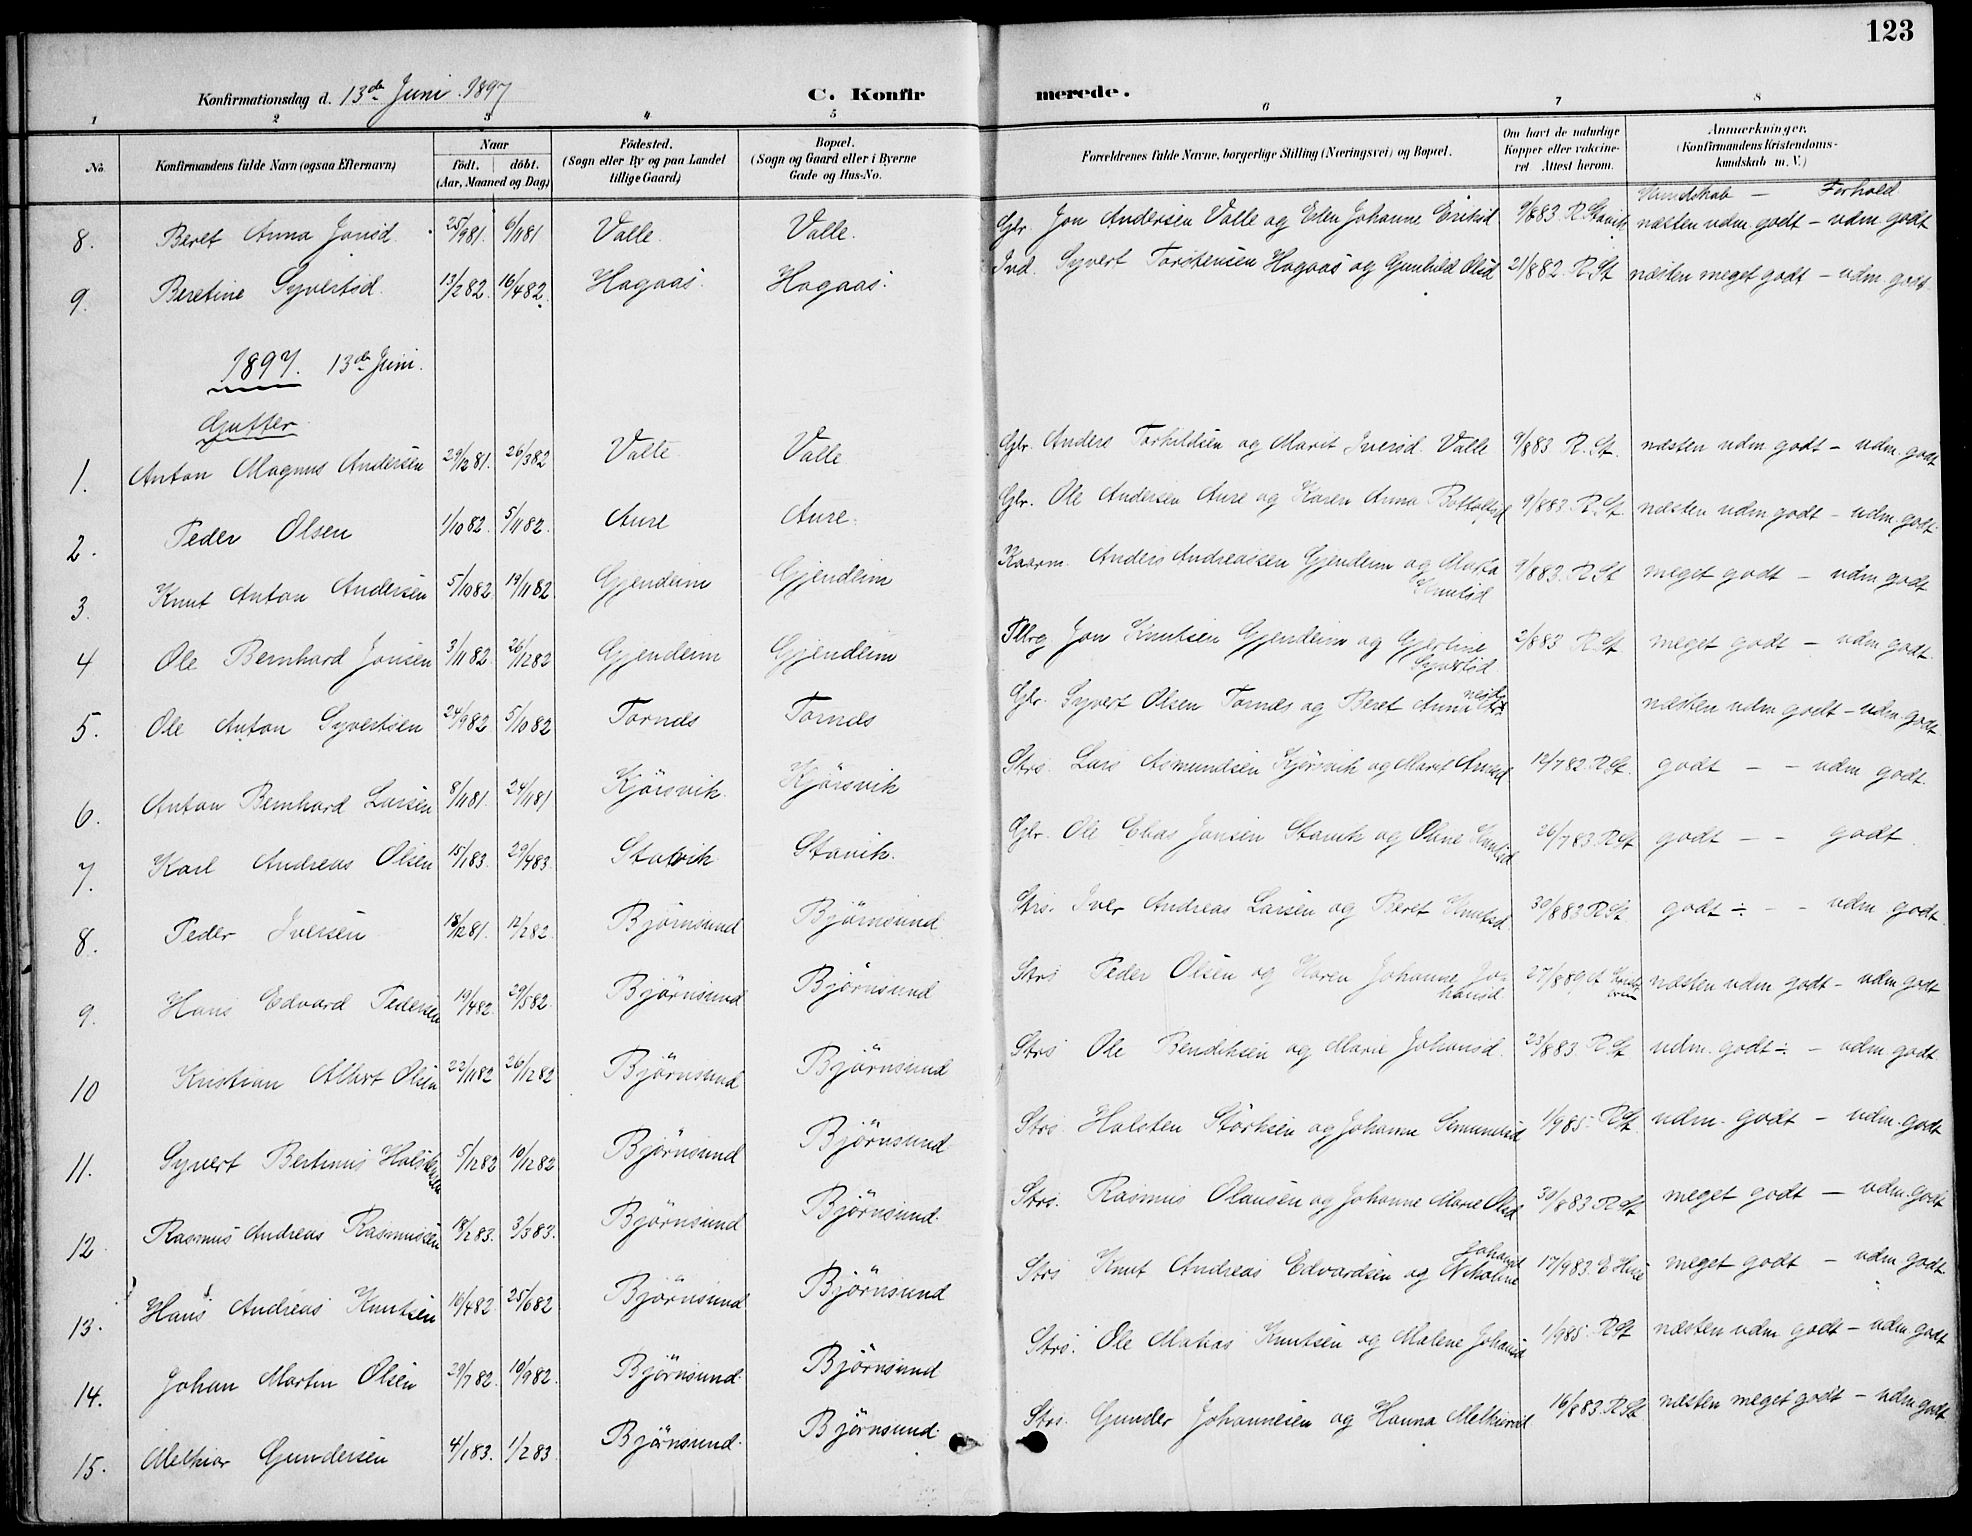 123
Konfirmationsdag d. 13de Juni 1897
C. Konfirmerede.
1 2 3 4 5 6 7 8
No. Konfirmandens fulde Navn (ogsaa Efternavn) Naar født. døbt. (Aar, Maaned og Dag) Födested. (Sogn eller By og paa Landet tillige Gaard) Bopæl. (Sogn og Gaard eller i Byerne Gade og Hus-No. Forældrenes fulde Navne, borgerlige Stilling (Næringsvei) og Bopæl. Om havt de naturlige Kopper eller vakcineret Attest herom. Anmærkninger. (Konfirmandens Kristendomskundskab m. V.)
Kundskab — Forhold
8. Beret Anna Jonsd. 25/981. 6/1181 Valle. Valle. Gbr. Jon Andersen Valle og Elen Johanne Eriksd 9/883 R Stavik næsten udm. godt – udm. godt
9. Beretine Syvertsd. 13/282. 16/482. Hagaas. Hagaas. Ind. Syvert Torstensen Hagaas og Gunhild Olsd 21/882. R. St næsten meget godt – udm. godt
1897. 13de Juni.
Gutter
1. Anton Magnus Andersen 29/1281. 26/382 Valle Valle Gbr. Anders Torkildsen og Marit Iversd. Valle 9/883 R. St. næsten udm godt – udm. godt
2. Peder Olsen 1/1082. 5/1182. Aure Aure. Gbr. Ole Andersen Aure og Karen Anna 9/883. R. St næsten udm godt – udm. godt.
3. Knut Anton Andersen 5/1082 19/1182 Gjendeim Gjendeim Kaarm. Anders Andreassen Gjendeim og Marta Knutsd 9/883. R St meget godt – udm godt
4 Ole Bernhard Jonsen 3/1182. 26/1282 Gjendeim Gjendeim Jon Knutsen Gjendeim og Gjertine Syvertsd 2/883 R. St meget godt – udm godt.
5. Ole Anton Syvertsen 24/982 5/1082 Tornæs Tornæs Gbr. Syvert Olsen Tornæs og Beret Anna næsten udm godt – udm. godt
6. Anton Bernhard Larsen 8/1181. 24/1181 Kjörsvik. Kjörsvik Strs. Lars Asmundsen Kjørsvik og Marit 12/782. R St. godt – – udm godt.
7. Karl Andreas Olsen 15/183. 29/483. Stavik Stavik. Gbr. Ole Elias Jonsen Stavik og Olave Knutsd 26/783. R St godt – – godt.
8. Peder Iversen 18/1281. 12/282. Björnsund Björnsund Strs. Iver Andreas Larsen og Beret Knutsd 30/883. R St godt ÷. – – udm godt.
9. Hans Edvard Pedersen 19/482. 29/582. Björnsund Björnsund Strs Peder Olsen og Karen Johanne Johansd 27/889 næsten udm godt – udm godt
10 Kristian Albert Olsen 22/1182 26/1282 Björnsund Björnsund Strs Ole Bendiksen og Marie Johansd. 23/883. R St udm. godt ÷. – udm. godt.
11. Syvert Bertinus Halstensen 5/1282 10/1282 Björnsund Björnsund Strs. Halsten Störksen og Johanne 1/985. R St. udm. godt – udm. godt
12 Rasmus Andreas Rasmussen 18/283. 3/383. Björnsund Björnsund. Strs. Rasmus Olausen og Johanne Marie Olsd 30/883. R St meget godt – udm. godt
13. Hans Andreas Knutsen 16/482. 25/682 Björnsund Björnsund Strs Knut Andreas Edvardsen og Nikoline 17/983. meget godt – udm. godt
14. Johan Martin Olsen 29/782. 10/982. Björnsund. Björnsund Strs. Ole Matias Knutsen og Malene Johansd 1/985. R St næsten udm godt – udm. godt
15. Melkior Gundersen 4/183. 1/283 Björnsund. Björnsund. Strs. Gunder Johannesen og Hanna Melkiorsd 16/883. R St næsten meget godt – udm godt